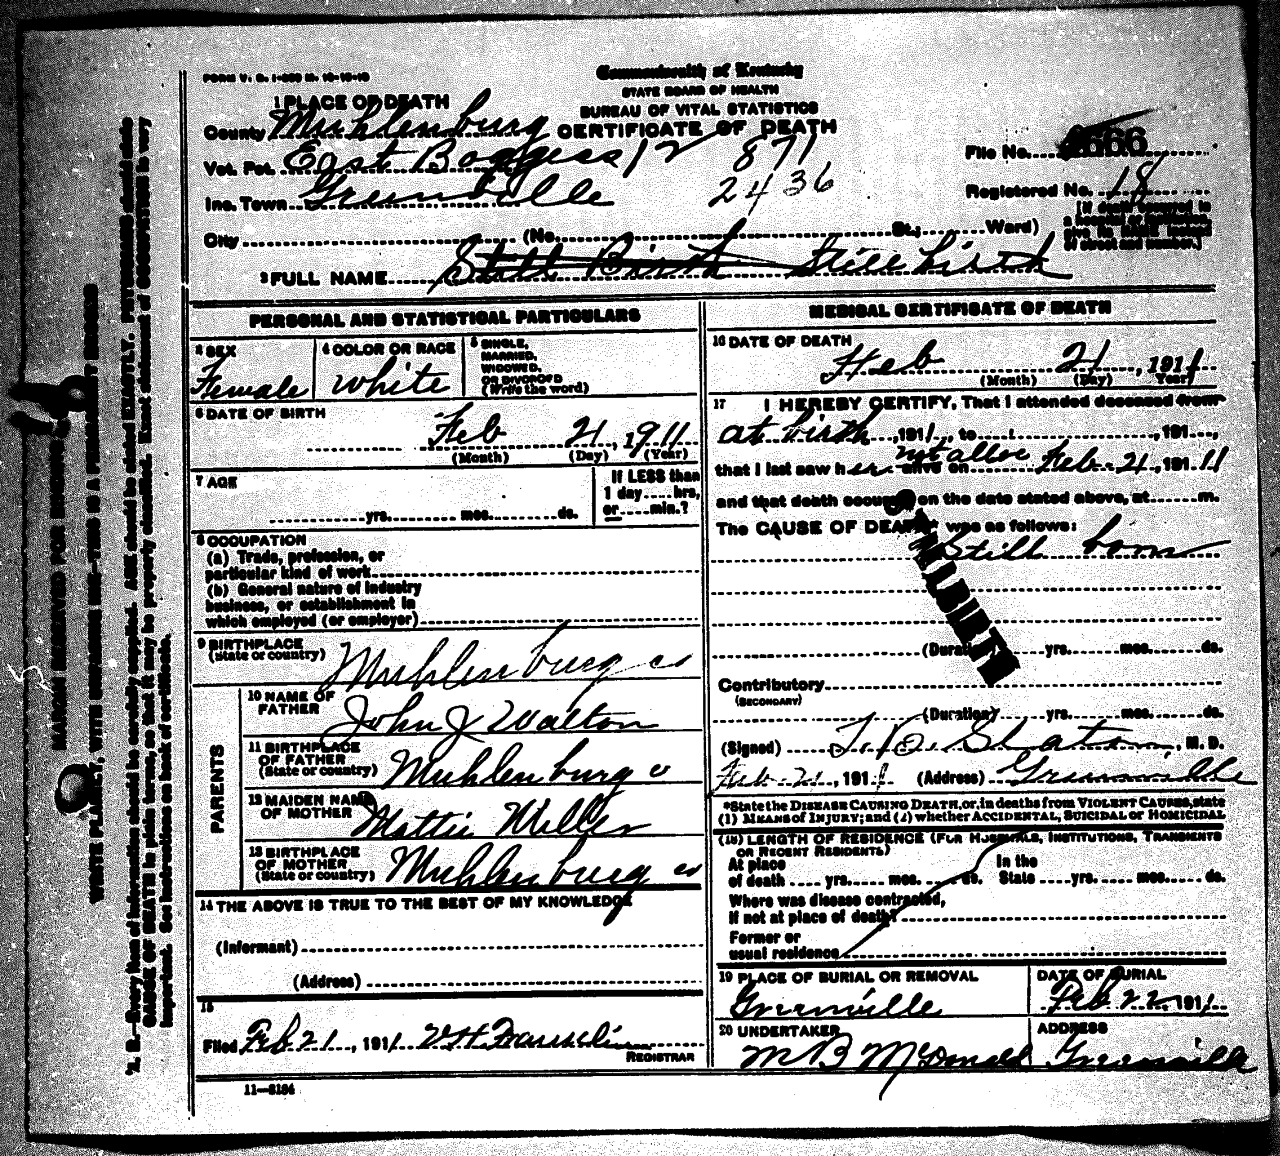 FORM V. S. 1
Commonwealth of Kentucky
STATE BOARD OF HEALTH
BUREAU OF VITAL STATISTICS
CERTIFICATE OF DEATH
1 PLACE OF DEATH
County Muhlenburg
Vot. Pct. East Boggess 12 871
Inc. Town Greenville 2436
City (No. St.; Ward)
File No. 4666
Registered No. 18
[If death occurred in
a hospital or institution,
give its NAME instead
of street and number.]
2 FULL NAME Still Birth Still birth
PERSONAL AND STATISTICAL PARTICULARS
3 SEX
Female
4 COLOR OR RACE
White
5 SINGLE,
MARRIED,
WIDOWED,
OR DIVORCED
(Write the word)
6 DATE OF BIRTH
Feb 21, 1911
(Month) (Day) (Year)
7 AGE
yrs. mos. ds.
If LESS than
1 day hrs,
or min.?
8 OCCUPATION
(a) Trade, profession, or
particular kind of work
(b) General nature of industry
business, or establishment in
which employed (or employer)
9 BIRTHPLACE
(State or country) Muhlenburg co
PARENTS
10 NAME OF
FATHER John J Walton
11 BIRTHPLACE
OF FATHER
(State or country) Muhlenburg co
12 MAIDEN NAME
OF MOTHER Mattie Miller
13 BIRTHPLACE
OF MOTHER
(State or country) Muhlenburg co
14 THE ABOVE IS TRUE TO THE BEST OF MY KNOWLEDGE
(Informant)
(Address)
15
Filed Feb 21, 1911
REGISTRAR
11—3184
MEDICAL CERTIFICATE OF DEATH
16 DATE OF DEATH
Feb 21, 1911
(Month) (Day) (Year)
17 I HEREBY CERTIFY, That I attended deceased from
at birth, 1911, to , 191 ,
that I last saw her alive on Feb. 21, 191 11
and that death occurred on the date stated above, at m.
The CAUSE OF DEATH* was as follows:
Still born
(Duration) yrs. mos. ds.
Contributory
(SECONDARY)
(Duration) yrs. mos. ds.
(Signed) , M. D.
Feb 21, 1911 (Address) Greenville
*State the DISEASE CAUSING DEATH, or, in deaths from VIOLENT CAUSES, state
(1) MEANS OF INJURY; and (2) whether ACCIDENTAL, SUICIDAL or HOMICIDAL
(18) LENGTH OF RESIDENCE (FOR HOSPITALS, INSTITUTIONS, TRANSIENTS
OR RECENT RESIDENTS)
At place In the
of death yrs. mos. ds. State yrs. mos. ds.
Where was disease contracted,
if not at place of death?
Former or
usual residence
19 PLACE OF BURIAL OR REMOVAL
Greenville
DATE OF BURIAL
Feb 22, 1911
20 UNDERTAKER
M B McDonald
ADDRESS
Greenville
MARGIN RESERVED FOR BINDING
WRITE PLAINLY, WITH UNFADING INK—THIS IS A PERMANENT RECORD
N. B.—Every item of information should be carefully supplied. AGE should be stated EXACTLY. PHYSICIANS should state
CAUSE OF DEATH in plain terms, so that it may be properly classified. Exact statement of OCCUPATION is very
important. See instructions on back of certificate.